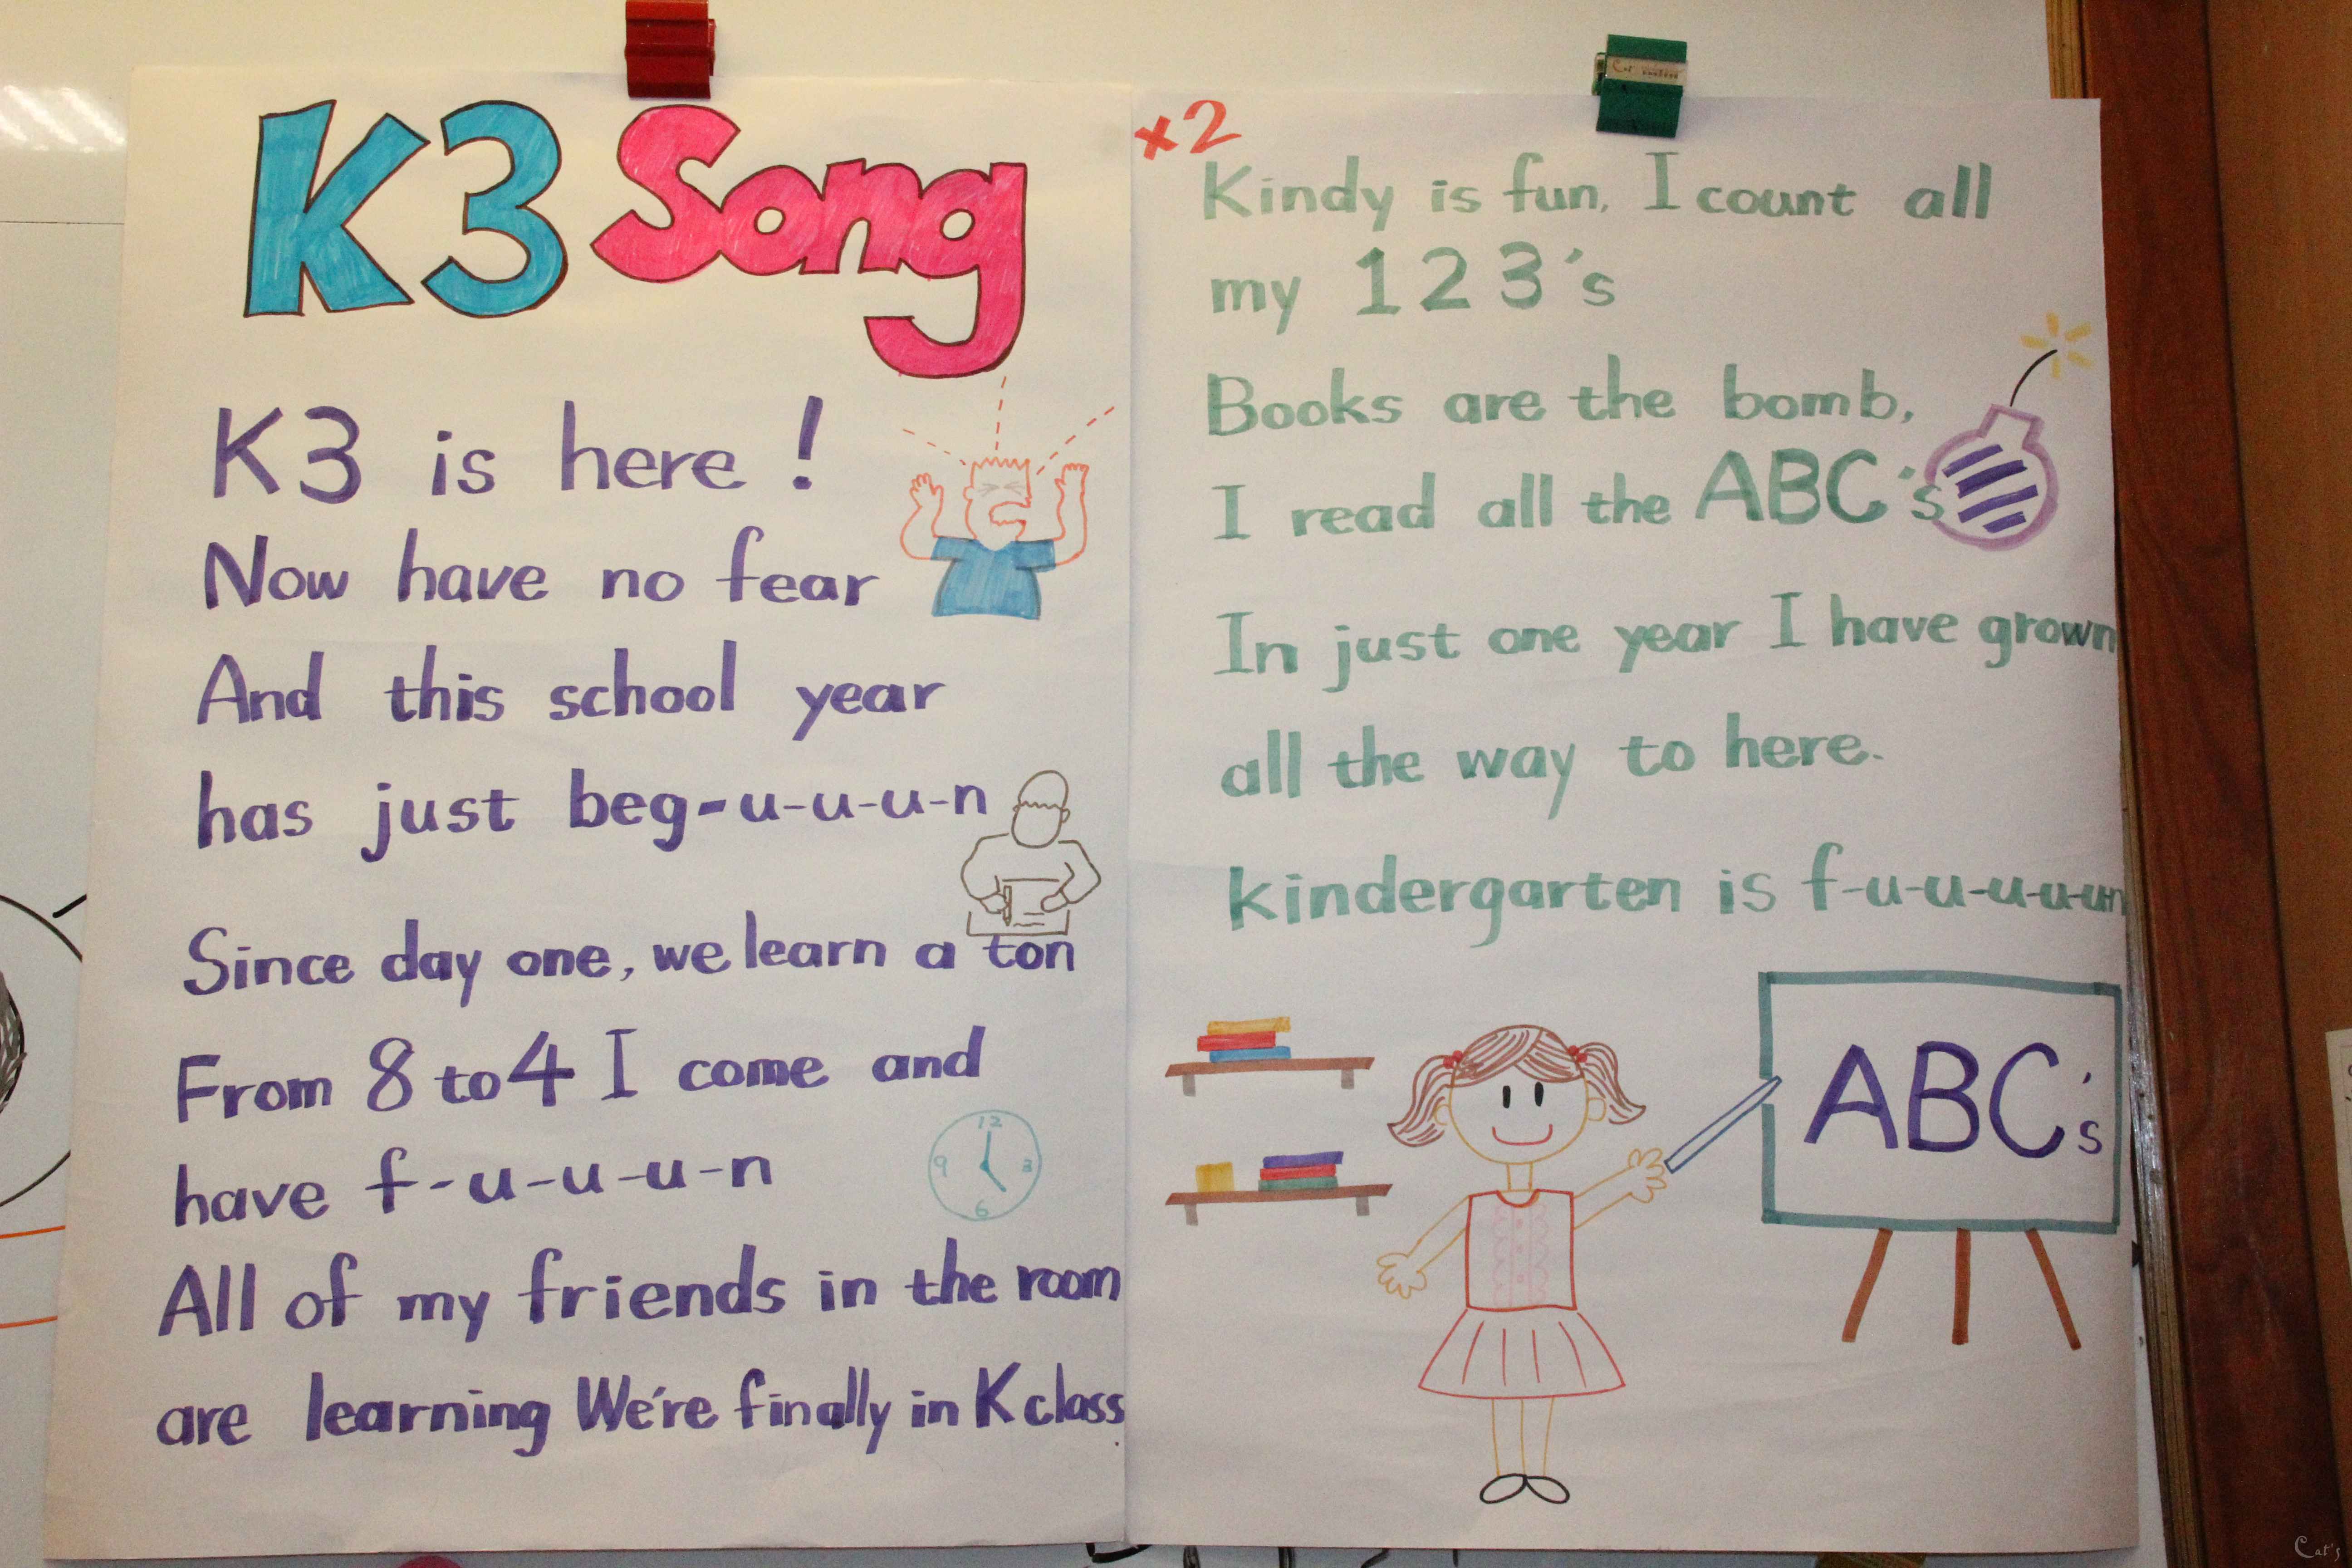 K3 Song
K3 is here!
Now have no fear
And this school year
has just beg-u-u-u-n
Since day one, we learn a ton
From 8 to 4 I come and
have f-u-u-u-n
12
9 3
6
All of my friends in the room
are learning We're finally in K class
x2
Kindy is fun, I count all
my 123's
Books are the bomb,
I read all the ABC's
In just one year I have grown
all the way to here.
kindergarten is f-u-u-u-u-un
ABC's
Cat's